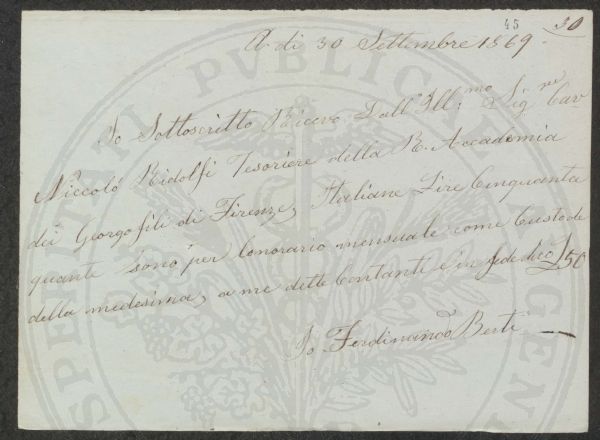 45 30
A di 30 Settembre 1869.
Io Sottoscritto Ricevo Dall'Ill:mo Sig:re Cav
Niccolò Ridolfi Tesoriere della R. Accademia
dei Georgofili di Firenze, Italiane Lire Cinquanta
quante sono per l'onorario mensuale come Custode
della medesima, a me dette Contanti e in fede dico £50
Io Ferdinando Berti
PVBLICAE